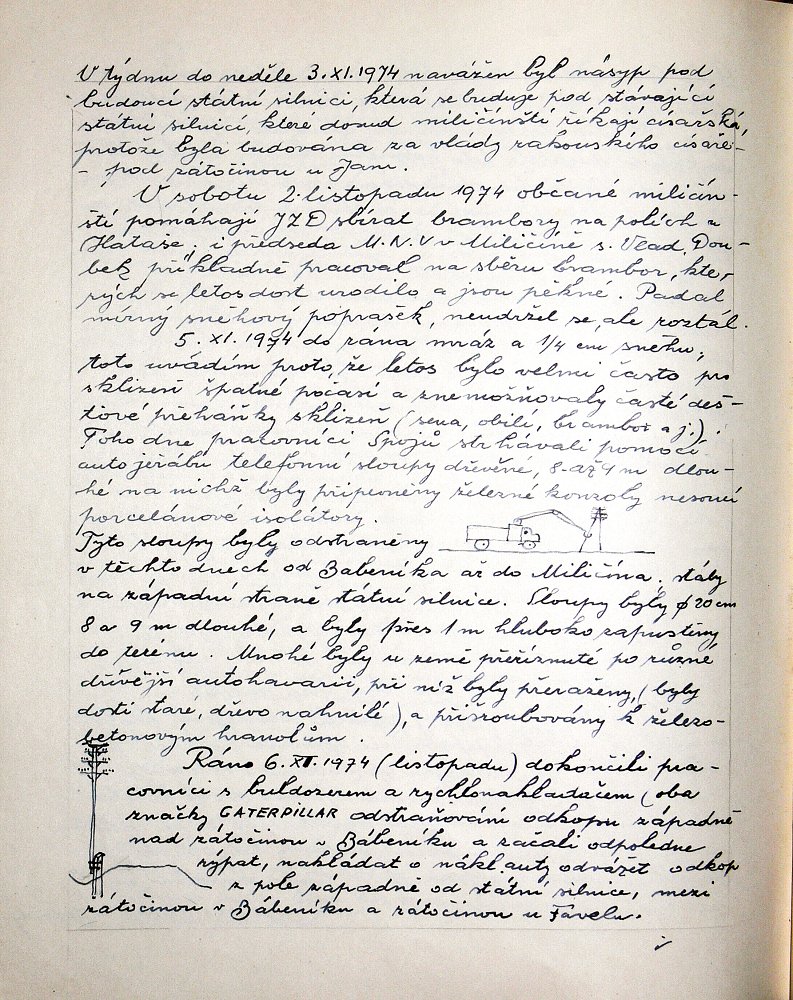 V týdnu do neděle 3.XI.1974 navážen byl násyp pod
budoucí státní silnici, která se buduje pod stávající
státní silnicí, které dosud miličínští říkají císařská,
protože byla budována za vlády rakouského císaře -
- pod zátočinou u Jam.
V sobotu 2. listopadu 1974 občané miličín-
ští pomáhají JZD sbírat brambory na polích u
Hataše; i předseda M.N.V. v Miličíně s. Vlad. Dou-
bek příkladně pracoval na sběru brambor, kte-
rých se letos dost urodilo a jsou pěkné. Padal
mírný sněhový poprašek, neudržel se, ale roztál.
5. XI. 1974 do rána mráz a 1/4 cm sněhu;
toto uvádím proto, že letos bylo velmi často pro
sklizeň špatné počasí a znemožňovaly časté deš-
ťové přeháňky sklizeň (sena, obilí, brambor a j.).
Toho dne pracovníci Spojů strhávali pomocí
autojeřábu telefonní sloupy dřevěné, 8-až 9 m dlou-
hé na nichž byly připevněny železné konzoly nesoucí
porcelánové isolátory.
Tyto sloupy byly odstraněny
v těchto dnech od Bábeníka až do Miličína, stály
na západní straně státní silnice. Sloupy byly ø 20 cm
8 a 9 m dlouhé, a byly přes 1 m hluboko zapuštěny
do terénu. Mnohé byly u země přeříznuté po různé
dřívější autohavarii, při níž byly přeraženy, (byly
dosti staré, dřevo nahnilé), a přišroubovány k železo-
betonovým hranolům.
Ráno 6. XI. 1974 (listopadu) dokončili pra-
covníci s buldozerem a rychlonakladačem (oba
značky CATERPILLAR odstraňování odkopu západně
nad zátočinou v Bábeníku a začali odpoledne
rýpat, nakládat a nákl. auty odvážet odkop
z pole západně od státní silnice, mezi
zátočinou v Bábeníku a zátočinou u Favelu.